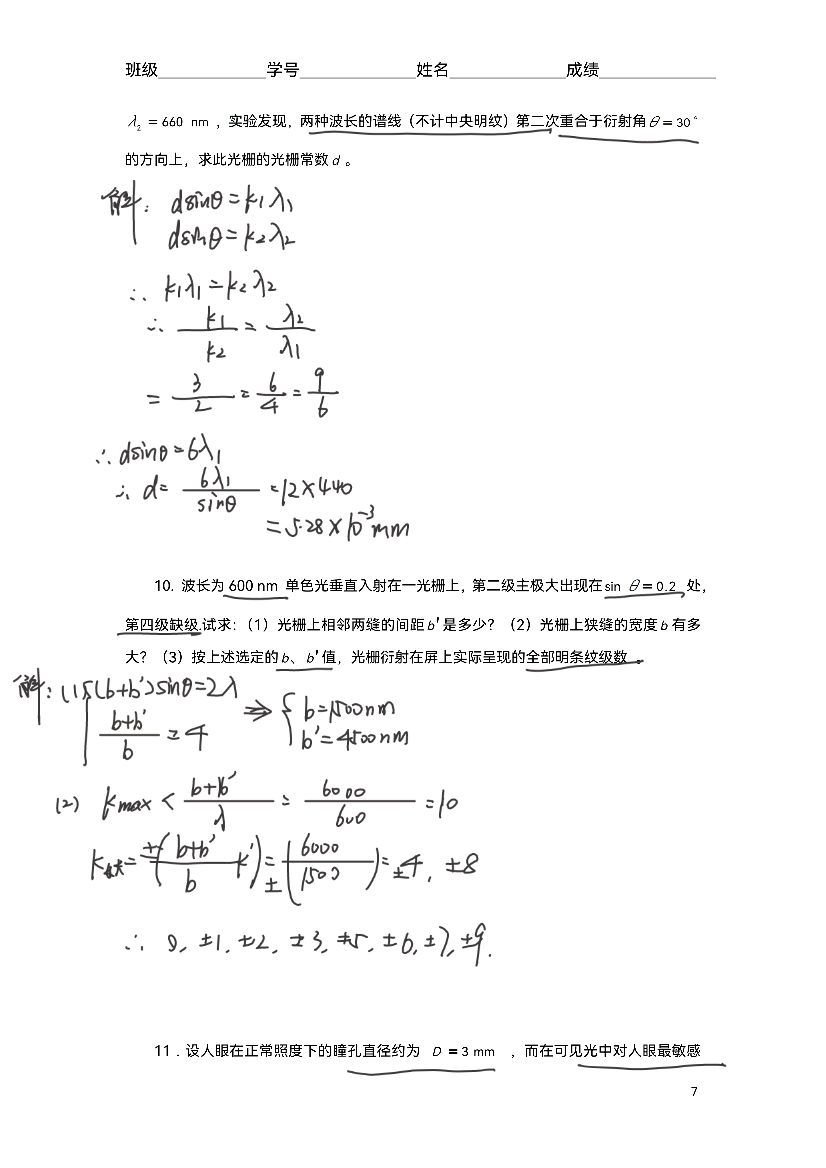 班级 学号 姓名 成绩
λ₂ = 660 nm ，实验发现，两种波长的谱线（不计中央明纹）第二次重合于衍射角θ=30°
的方向上，求此光栅的光栅常数d 。
解: dsinθ=k₁λ₁
dsinθ=k₂λ₂
∴ k₁λ₁=k₂λ₂
∴ k₁/k₂ = λ₂/λ₁
= 3/2 = 6/4 = 9/6
∴ dsinθ=6λ₁
∴ d= 6λ₁/sinθ =12×440
=5.28×10⁻³mm
10. 波长为 600 nm 单色光垂直入射在一光栅上，第二级主极大出现在sin θ=0.2 处，
第四级缺级.试求:（1）光栅上相邻两缝的间距b′是多少？（2）光栅上狭缝的宽度b 有多
大？（3）按上述选定的b、b′值，光栅衍射在屏上实际呈现的全部明条纹级数 。
解: (1) { (b+b′)sinθ=2λ
(b+b′)/b = 4 ⇒ { b=1500nm
b′=4500nm
(2) kmax < (b+b′)/λ = 6000/600 =10
k缺= ±((b+b′)/b k′)= ±(6000/1500)= ±4, ±8
∴ 0, ±1, ±2, ±3, ±5, ±6, ±7, ±9.
11．设人眼在正常照度下的瞳孔直径约为 D = 3 mm ，而在可见光中对人眼最敏感
7